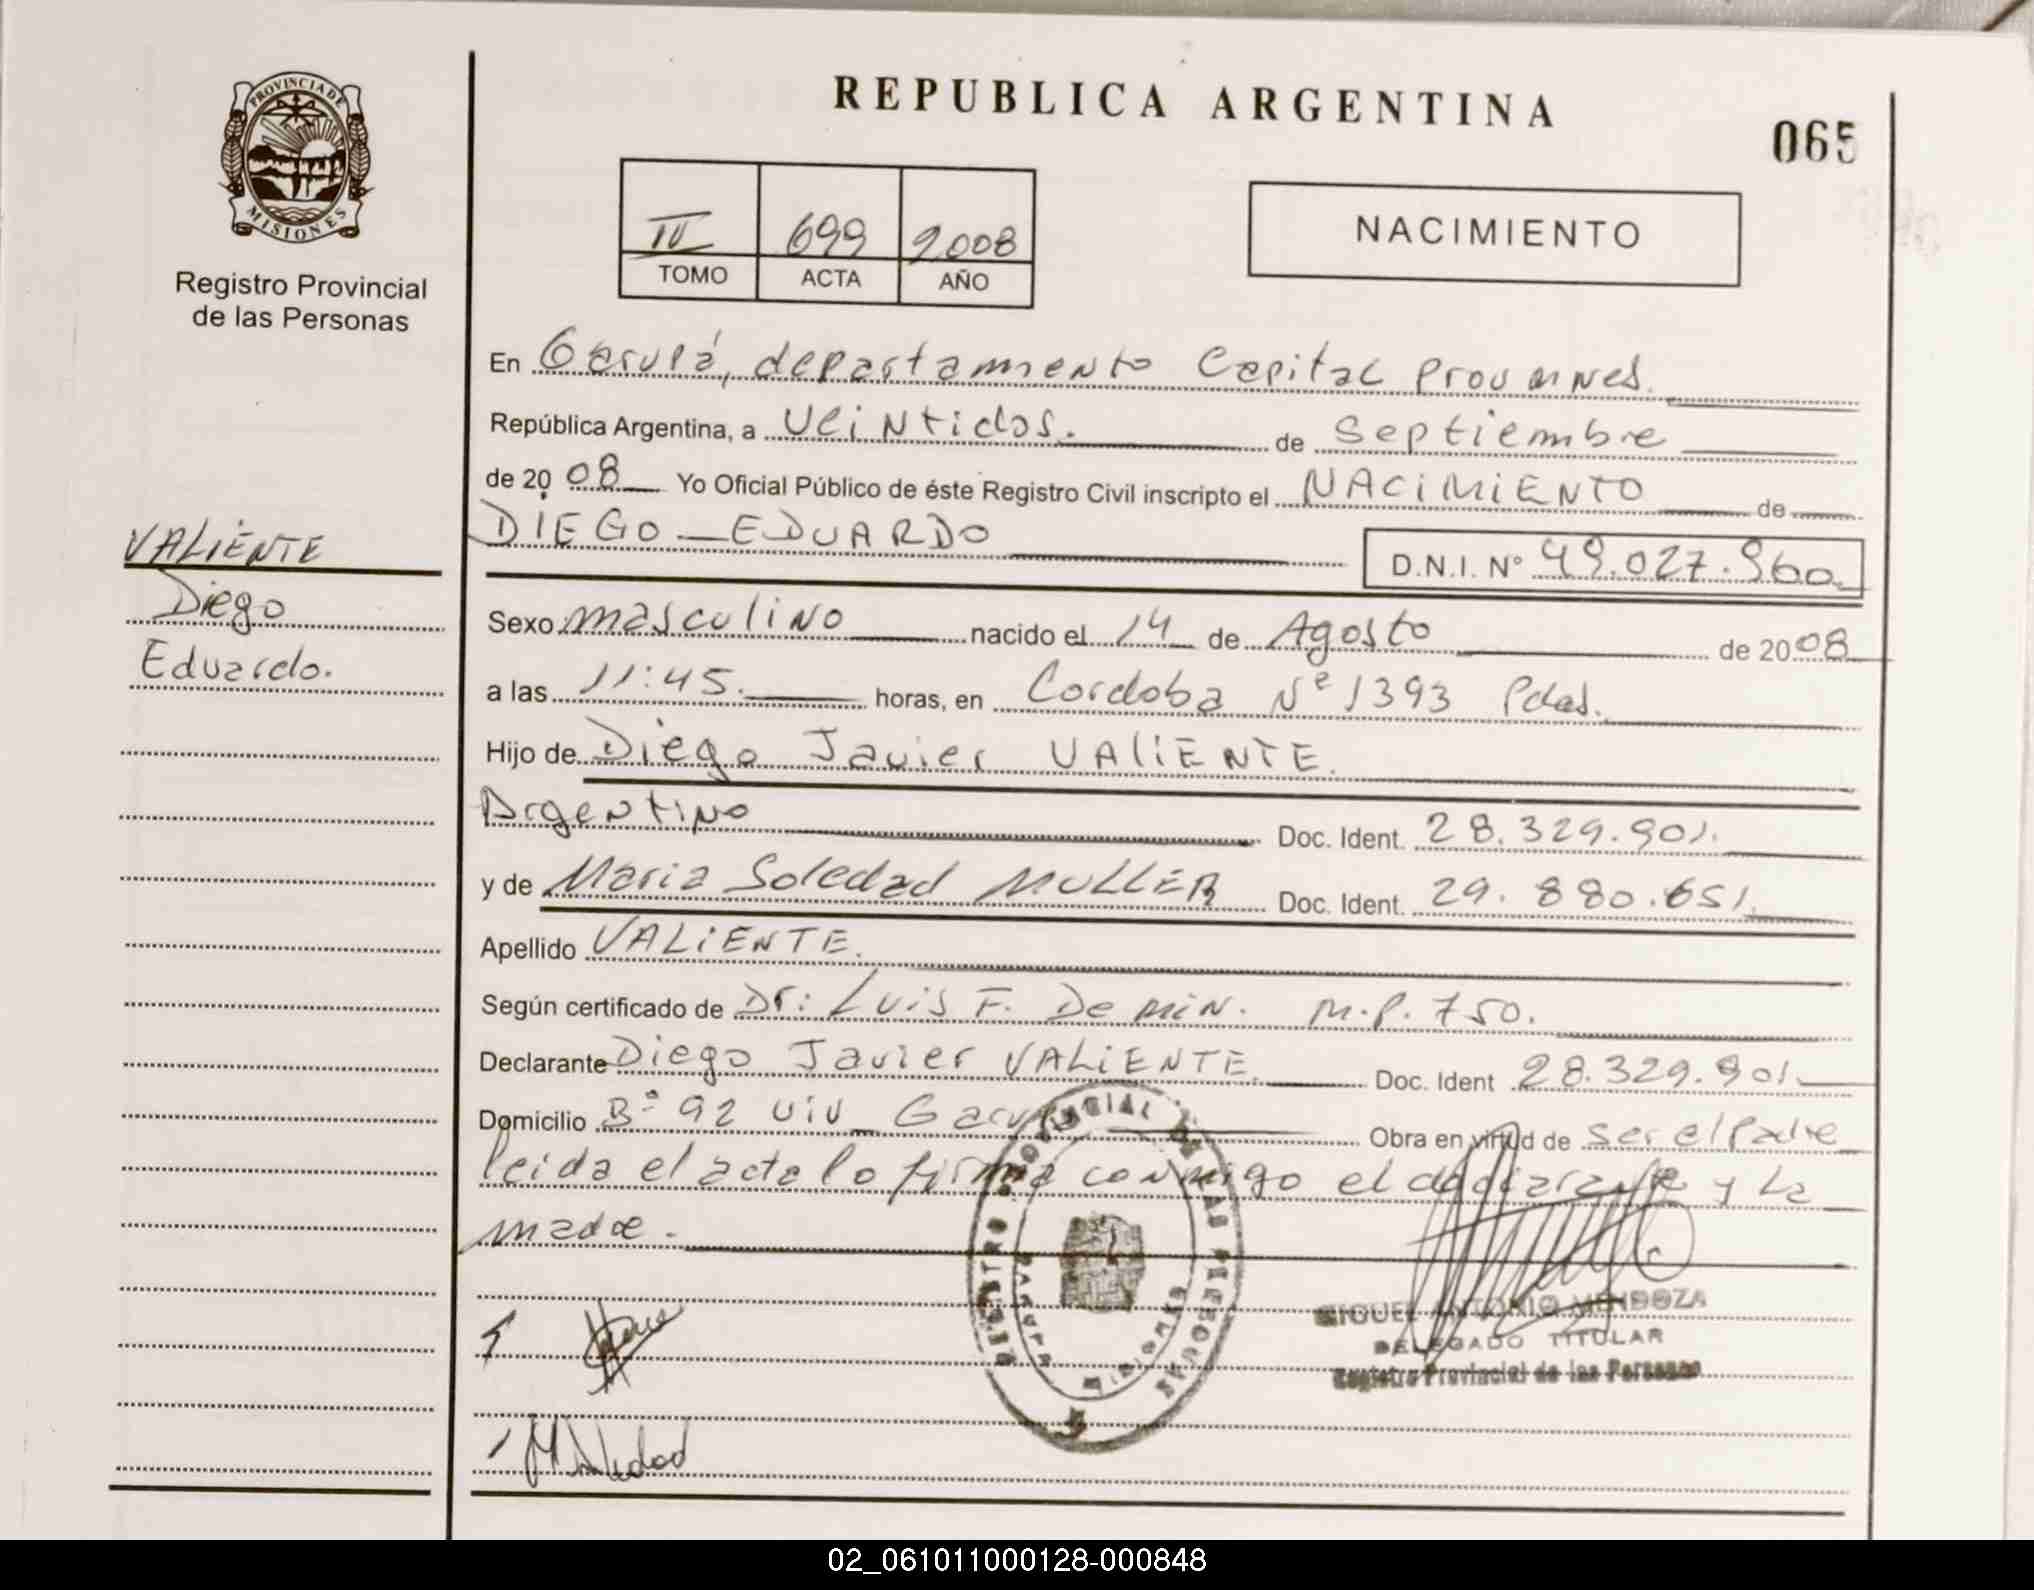 REPUBLICA ARGENTINA
065
PROVINCIA DE
MISIONES
Registro Provincial
de las Personas
IV 699 2008
TOMO ACTA AÑO
NACIMIENTO
En Garupá, departamento Capital Prov
República Argentina, a Veintidos. de Septiembre
de 2008 Yo Oficial Público de éste Registro Civil inscripto el NACIMIENTO de
DIEGO EDUARDO
D.N.I. Nº 49.027.960
VALIENTE
Diego
Eduardo.
Sexo masculino nacido el 14 de Agosto de 2008
a las 11:45. horas, en Cordoba Nº 1393 Pdas.
Hijo de Diego Javier VALIENTE.
Argentino Doc. Ident. 28.329.901.
y de Maria Soledad MULLER Doc. Ident. 29.880.651.
Apellido VALIENTE.
Según certificado de Dr: Luis F. De Min. M.P. 750.
Declarante Diego Javier VALIENTE. Doc. Ident 28.329.901.
Domicilio Bº 92 viv Garupá Obra en virtud de ser el Padre
leida el acta lo firma conmigo el declarante y La
madre.
REGISTRO PROVINCIAL DE LAS PERSONAS
GARUPA
MISIONES
MIGUEL ANTONIO MENDOZA
DELEGADO TITULAR
Registro Provincial de las Personas
M Soledad
02_061011000128-000848